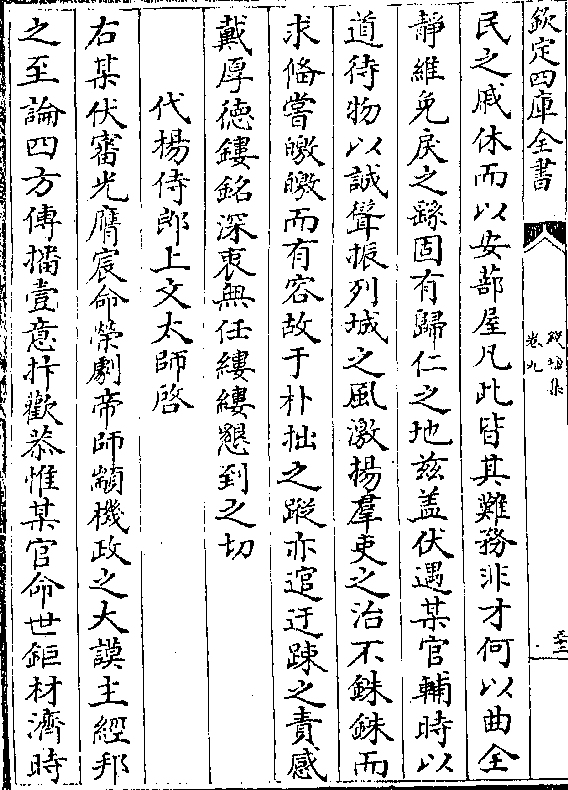 欽定四庫全書
卷九
民之戚休而以安蔀屋凡此皆其難務非才何以曲全
静維免戾之繇固有歸仁之地兹盖伏遇某官輔時以
道待物以誠聲振列城之風激揚羣吏之治不銖銖而
求俻嘗皦皦而有容故于朴拙之蹤亦逭迂踈之責感
戴厚徳鏤銘深衷無任縷縷懇到之切
代楊侍郎上文太師啓
右某伏審光膺宸命榮劇帝師顓機政之大謨主經邦
之至論四方傳播壹意抃歡恭惟某官命世鉅材濟時